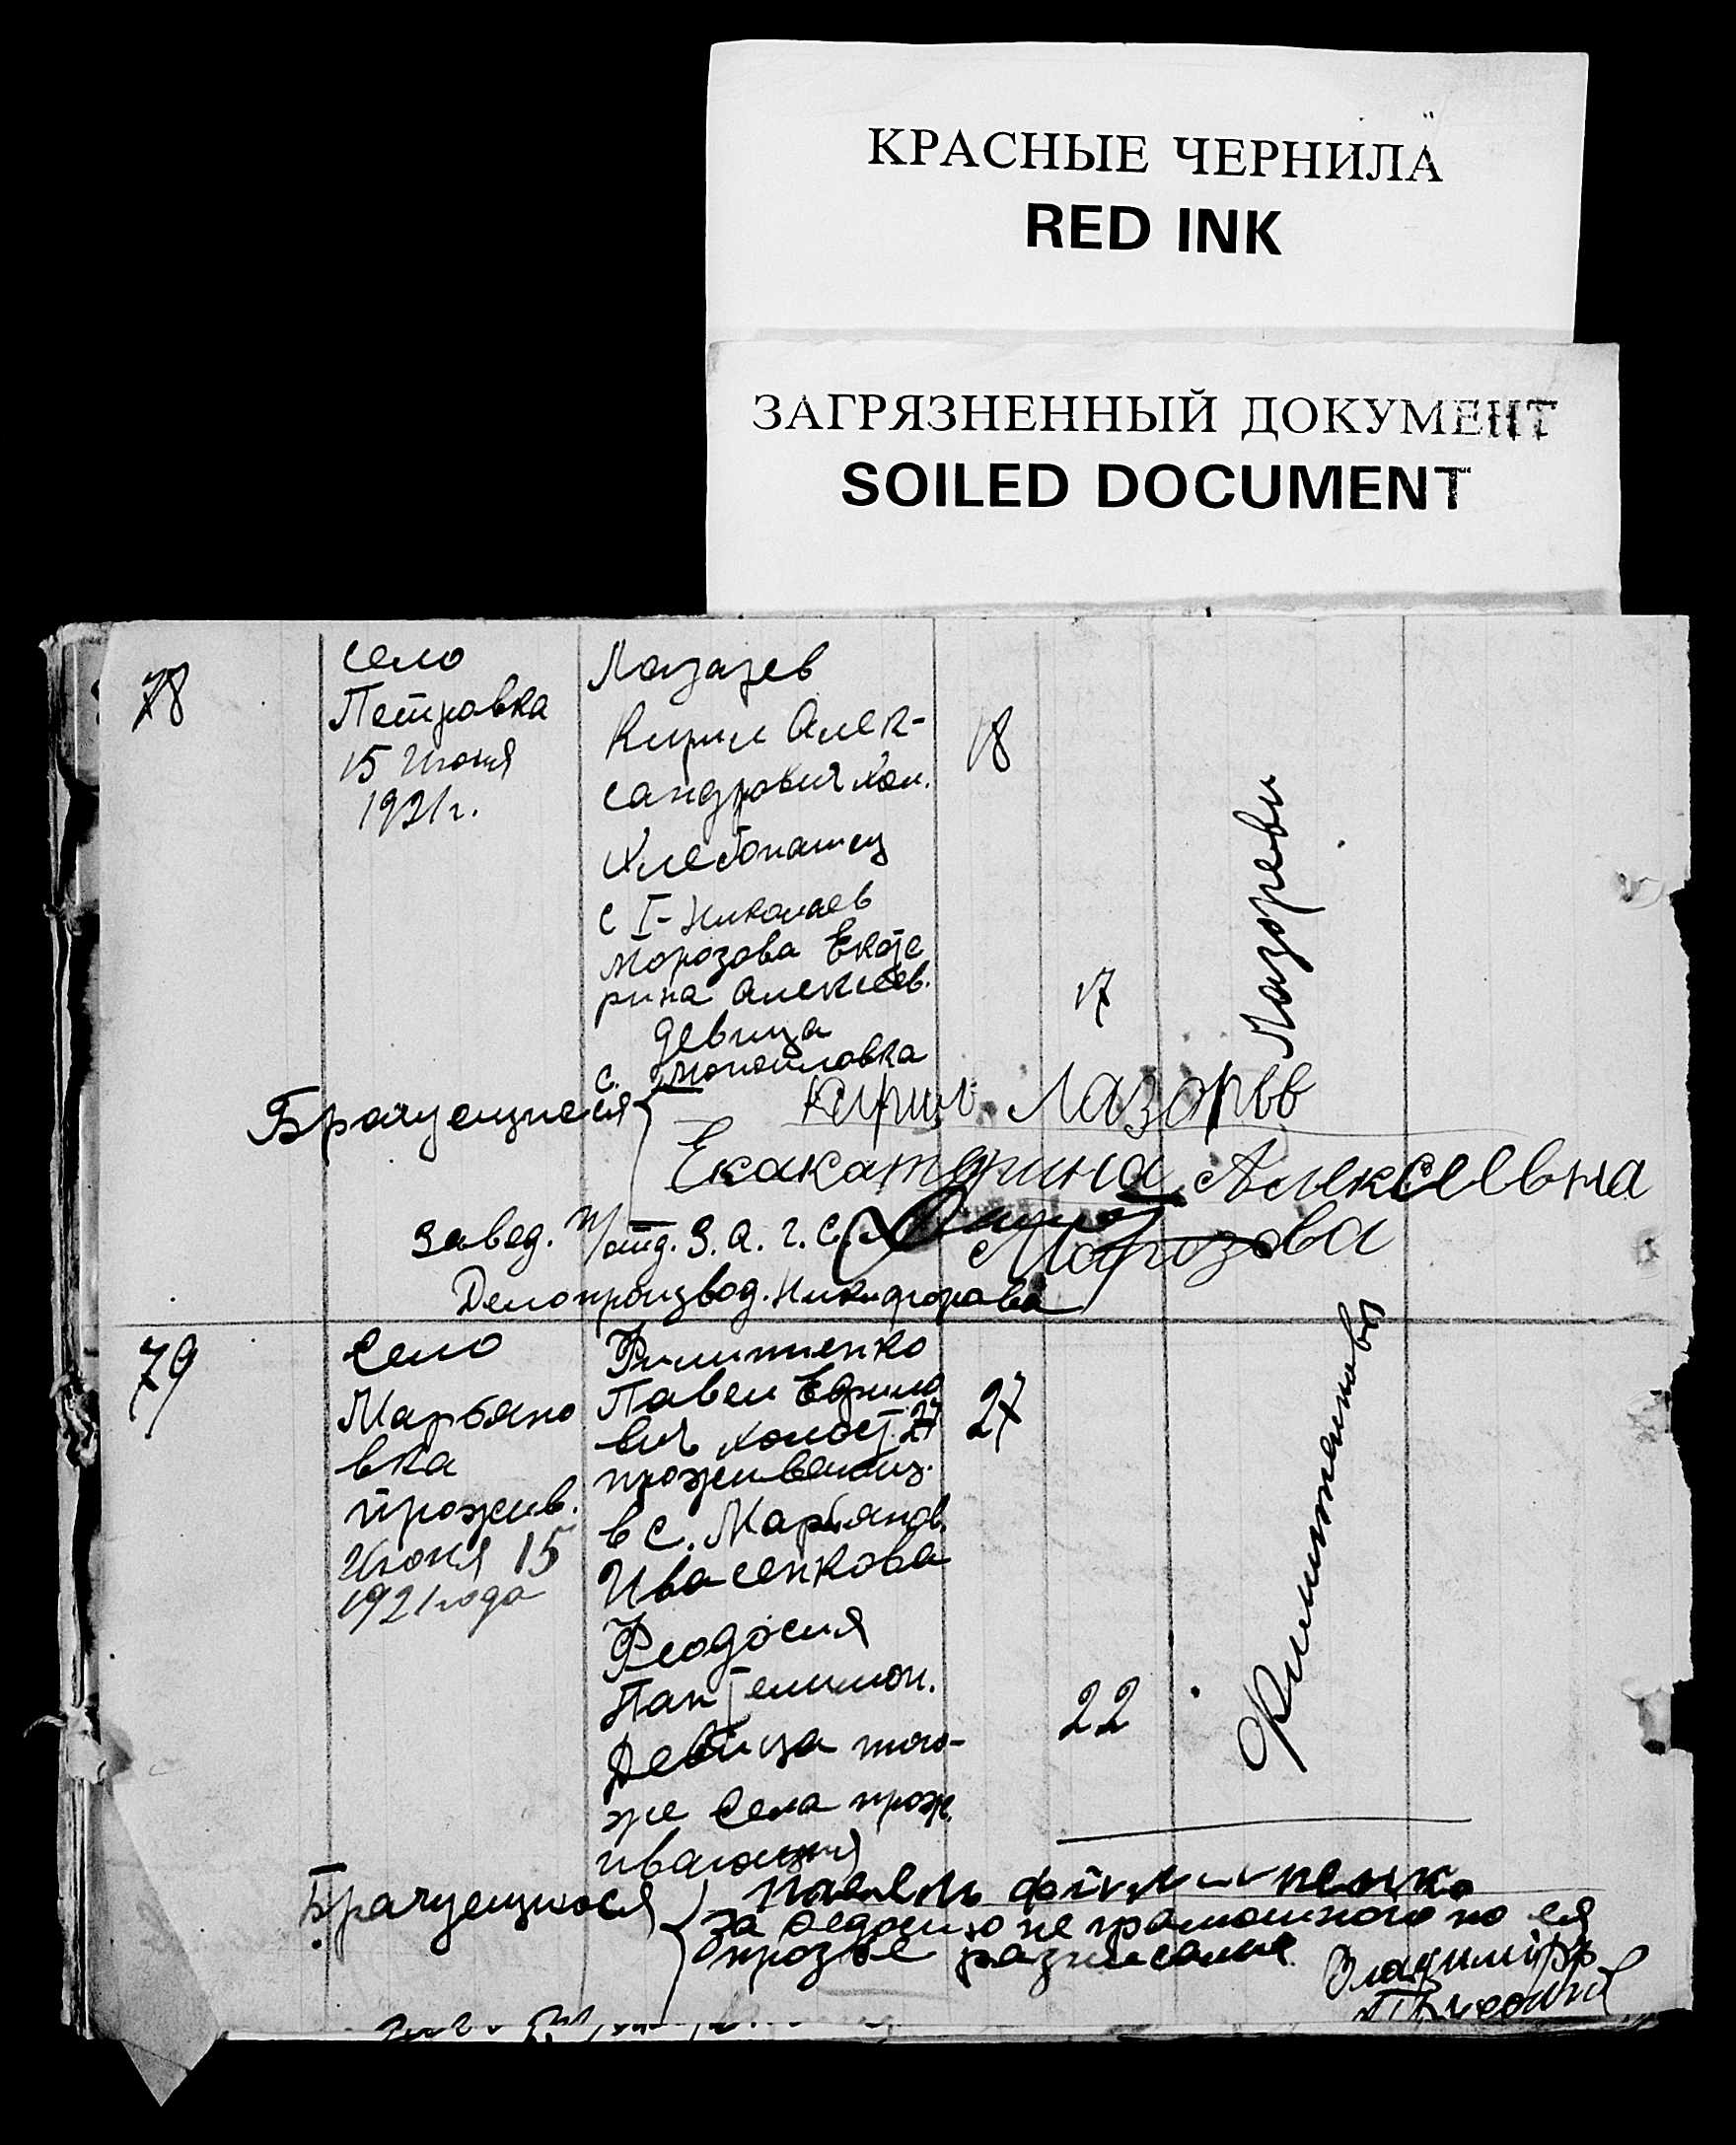 КРАСНЫЕ ЧЕРНИЛА
RED INK
ЗАГРЯЗНЕННЫЙ ДОКУМЕНТ
SOILED DOCUMENT
78
село
Петровка
15 Июня
1921г.
Лазарев
Кирил Алек-
сандрович хол.
Хлебопашец
с I-Николаев
Морозова Екате
рина Алексеев.
девица
с.
18
17
Лазореви
Брачующиеся
Кирил Лазорев
Екакатерина Алексеевна
Морозова
Завед. п/отд. З. А. Г. С.
Делопроизвод. Никифорова
79
Село
Марьяно
вка
прожив.
Июня 15
1921 года
Филипченко
Павел Ефимо
вич холост. 27
проживающ.
в с. Марьянов.
Ивасенкова
Феодосия
Пантелимон.
Девица того-
же села прож.
ивающия
27
22
Брачующиеся
за Федосию не грамотного по ея
прозбе
Владимир